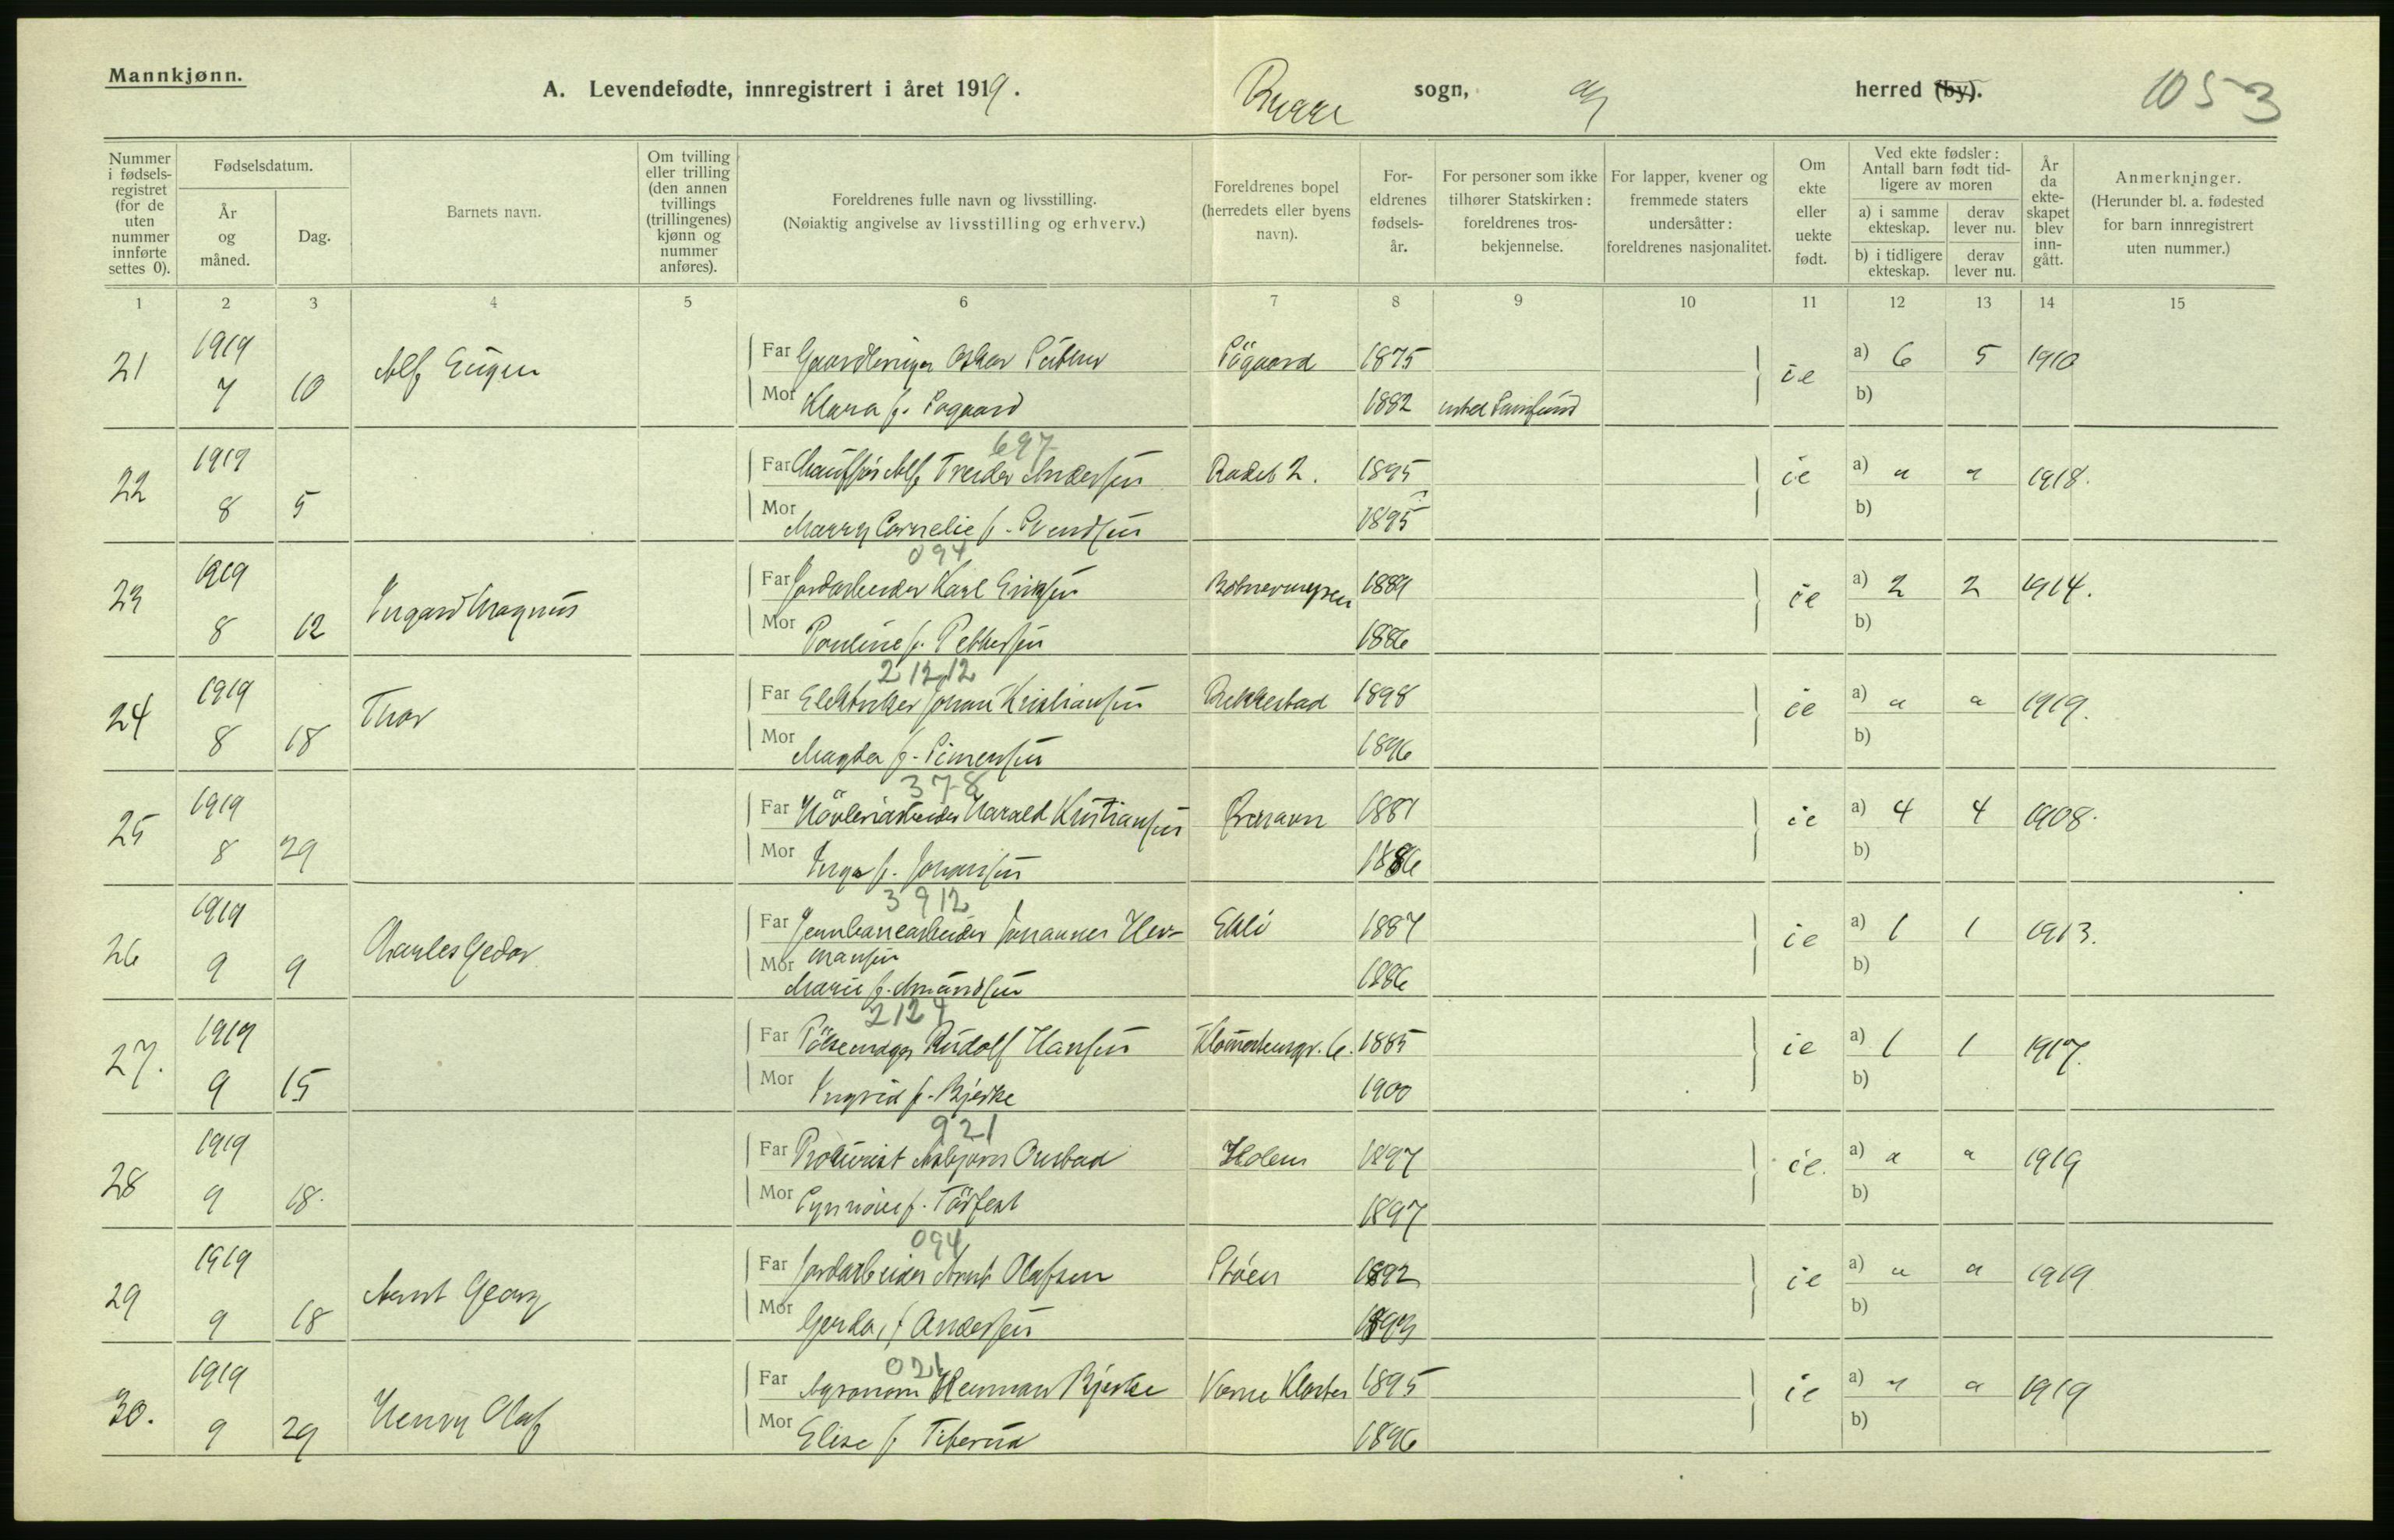 Mannkjønn.
A. Levendefødte, innregistrert i året 1919. Rygge sogn, herred (by). 1053
Nummer i fødselsregistret (for de uten nummer innførte settes 0).
Fødselsdatum.
År og måned.
Dag.
Barnets navn.
Om tvilling eller trilling (den annen tvillings (trillingenes) kjønn og nummer anføres).
Foreldrenes fulle navn og livsstilling.
(Nøiaktig angivelse av livsstilling og erhverv.)
Foreldrenes bopel (herredets eller byens navn).
Foreldrenes fødselsår.
For personer som ikke tilhører Statskirken: foreldrenes trosbekjennelse.
For lapper, kvener og fremmede staters undersåtter: foreldrenes nasjonalitet.
Om ekte eller uekte født.
Ved ekte fødsler: Antall barn født tidligere av moren
a) i samme ekteskap. derav lever nu.
b) i tidligere ekteskap. derav lever nu.
År da ekteskapet blev inngått.
Anmerkninger.
(Herunder bl. a. fødested for barn innregistrert uten nummer.)
1 2 3 4 5 6 7 8 9 10 11 12 13 14 15
21 1919 7 10 Alf Eugen Far Oskar 1875 ie a) 6 5 1910
Mor Klara f. Sogaard 1882 b)
697
22 1919 8 5 Far Chauffør Alf Treider Andersen Rødst 2. 1895 ie a) " " 1918.
Mor Marry Cornelie f. Svendsen 1895 b)
094
23 1919 8 12 Ingard Magnus Far Jordarbeider Karl Eriksen 1889 ie a) 2 2 1914.
Mor Pouline f. Pettersen 1886 b)
21212
24 1919 8 18 Thor Far Elektriker Johan Kristiansen Rekkestad 1898 ie a) " " 1919.
Mor Magda f. Simensen 1896 b)
378
25 1919 8 29 Far Høvleriarbeider Harald Kristiansen 1881 ie a) 4 4 1908.
Mor Inga f. Johansen 1886 b)
3912
26 1919 9 9 Charles Gedor Far Jernbanearbeider Johannes Hermansen Ekli 1887 ie a) 1 1 1913.
Mor Marie f. Amundsen 1886 b)
2124
27. 1919 9 15 Far Pølsemager Rudolf Hansen 1885 ie a) 1 1 1917.
Mor Ingrid f. Bjerke 1900 b)
921
28 1919 9 18. Far Prokurist Asbjørn Orebad Holen 1897 ie. a) " " 1919
Mor Synnøve f. 1897 b)
094
29 1919 9 18 Arnt Georg Far Jordarbeider Arnt Olafsen Støen 1892 ie a) " " 1919
Mor Gerda, f Andersen 1893 b)
021
30. 1919 9 29 Henry Olaf Far Agronom Herman Bjerke Værne Kloster 1895 ie a) " " 1919
Mor Elise f. Tiberud 1896 b)